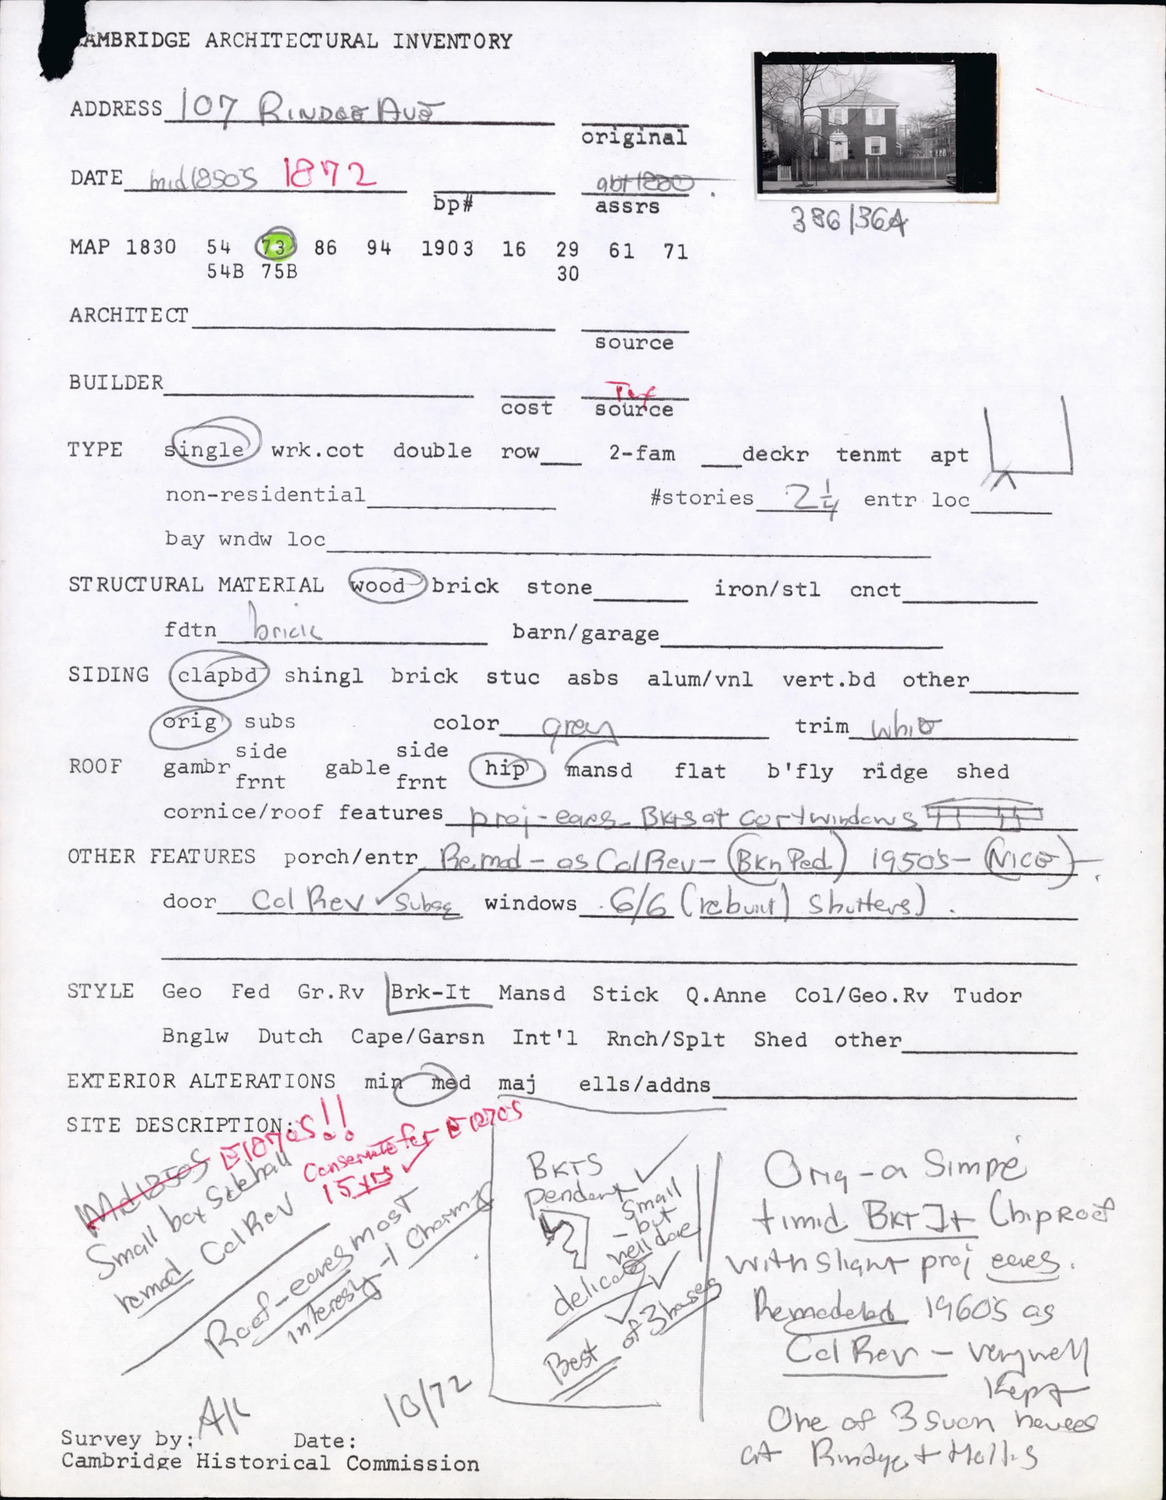 CAMBRIDGE ARCHITECTURAL INVENTORY
ADDRESS 107 Rindge Ave
original
DATE mid 1850's 1872 abt 1880
bp# assrs
386/36A
MAP 1830 54 73 86 94 1903 16 29 61 71
54B 75B 30
ARCHITECT
source
BUILDER
cost source
TYPE single wrk.cot double row 2-fam deckr tenmt apt
non-residential #stories 2 1/4 entr loc
bay wndw loc
STRUCTURAL MATERIAL wood brick stone iron/stl cnct
fdtn brick barn/garage
SIDING clapbd shingl brick stuc asbs alum/vnl vert.bd other
orig subs color grey trim white
side side
ROOF gambr gable hip mansd flat b'fly ridge shed
frnt frnt
cornice/roof features proj-eaves Bkts at windows
OTHER FEATURES porch/entr Remod - as Col Rev - (Bkn Ped) 1950's - (Nice)
door Col Rev ✓ Subsq windows 6/6 (rebuilt) shutters)
STYLE Geo Fed Gr.Rv Brk-It Mansd Stick Q.Anne Col/Geo.Rv Tudor
Bnglw Dutch Cape/Garsn Int'l Rnch/Splt Shed other
EXTERIOR ALTERATIONS min med maj ells/addns
SITE DESCRIPTION:
Md 1850's E1870's!!
Conservative for E1870's
15 yrs
Small box sidehall
remod Col Rev
Roof-eaves most
interesty + Charmg
BKTS
pendant
small
- but
well done
delicate
Best of 3 houses
Orig - a Simple
timid BKT It (hip roof
with slight proj eaves.
Remodeled 1960's as
Col Rev - very well
Kept
One of 3 such houses
at Rindge + Hollis
AK 10/72
Survey by: Date:
Cambridge Historical Commission